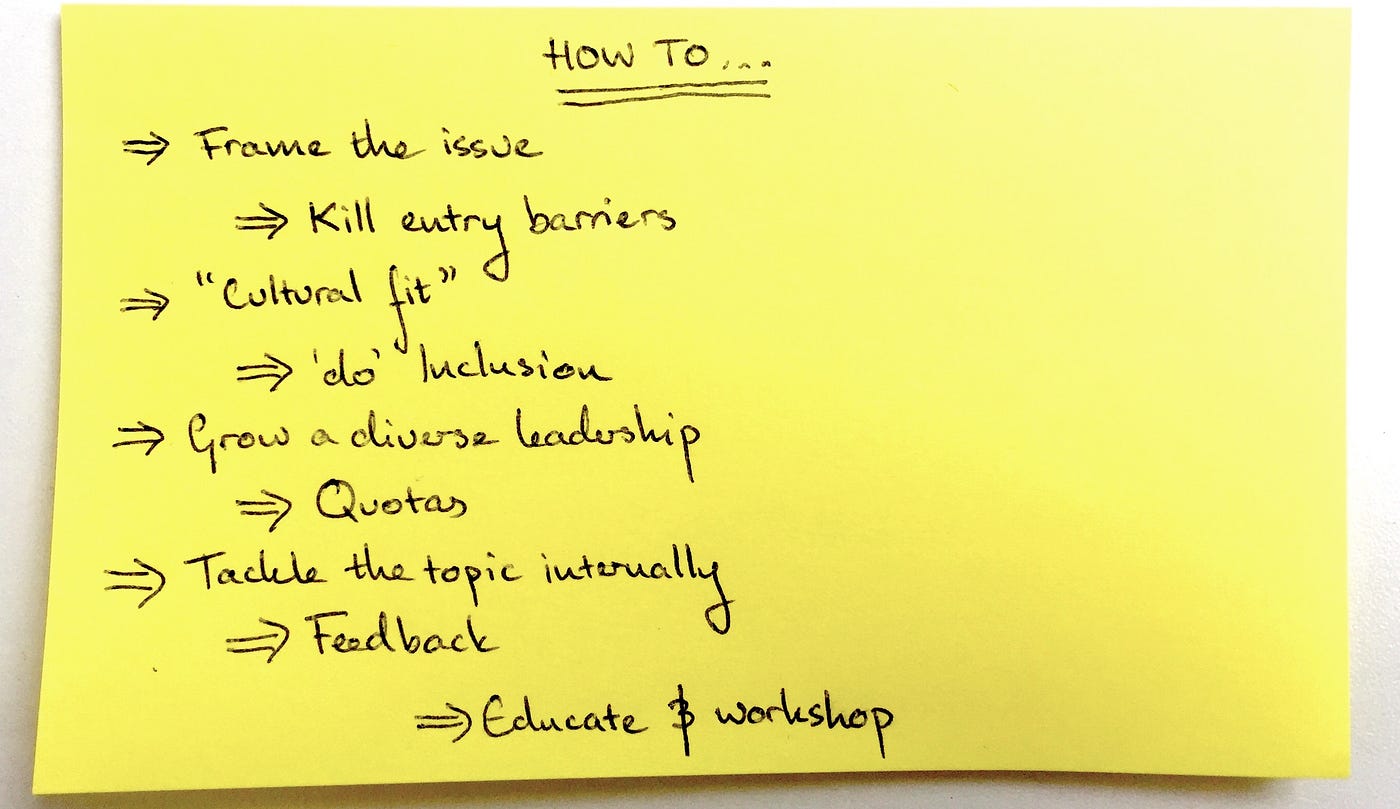 HOW TO...
⇒ Frame the issue
⇒ Kill entry barriers
⇒ "Cultural fit"
⇒ 'do' Inclusion
⇒ Grow a diverse leadership
⇒ Quotas
⇒ Tackle the topic internally
⇒ Feedback
⇒ Educate & workshop